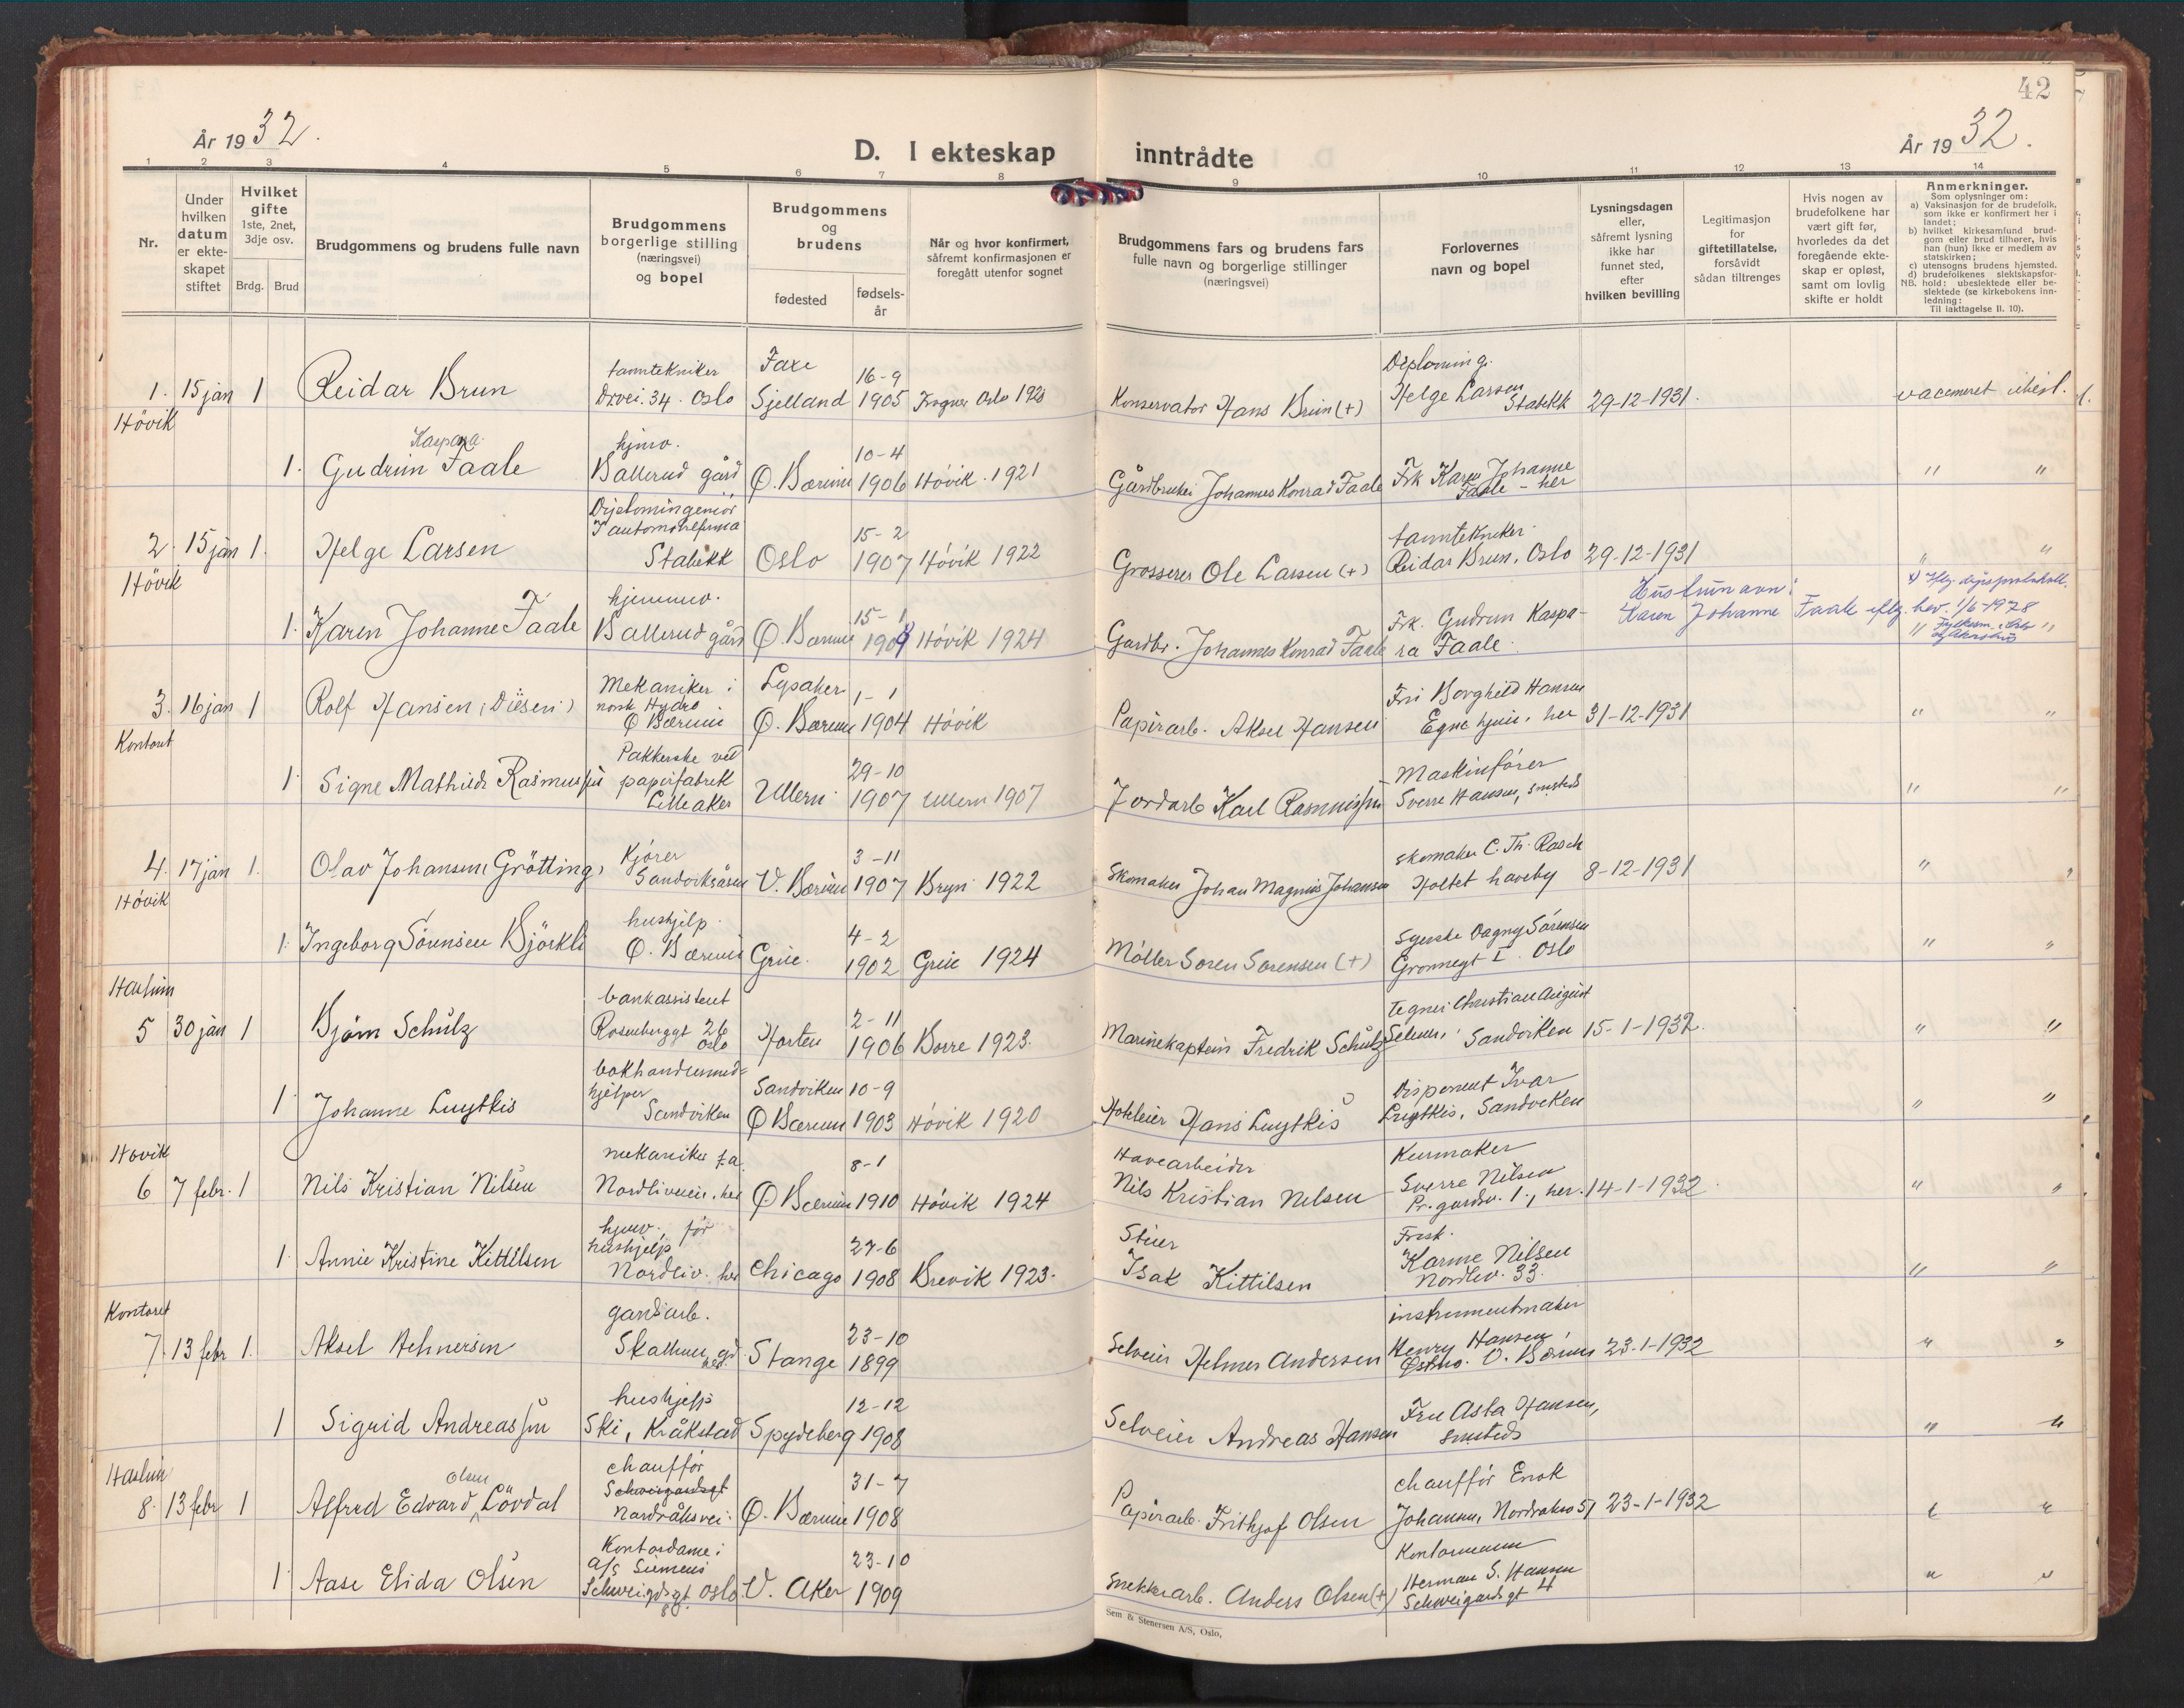 42
År 1932.
D. I ekteskap inntrådte
År 1932.
1 2 3 4 5 6 7 8 9 10 11 12 13 14
Nr.
Under hvilken datum er ekteskapet stiftet
Hvilket gifte 1ste, 2net, 3dje osv.
Brdg. Brud
Brudgommens og brudens fulle navn
Brudgommens borgerlige stilling (næringsvei) og bopel
Brudgommens og brudens
fødested
fødsels-år
Når og hvor konfirmert, såfremt konfirmasjonen er foregått utenfor sognet
Brudgommens fars og brudens fars fulle navn og borgerlige stillinger (næringsvei)
Forlovernes navn og bopel
Lysningsdagen eller, såfremt lysning ikke har funnet sted, efter hvilken bevilling
Legitimasjon for giftetillatelse, forsåvidt sådan tiltrenges
Hvis nogen av brudefolkene har vært gift før, hvorledes da det foregående ekteskap er opløst, samt om lovlig skifte er holdt
Anmerkninger.
Som oplysninger om:
a) Vaksinasjon for de brudefolk, som ikke er konfirmert her i landet;
b) hvilket kirkesamfund brudgom eller brud tilhører, hvis han (hun) ikke er medlem av statskirken;
c) utensogns brudens hjemsted.
d) brudefolkenes slektskapsforhold: ubeslektede eller beslektede (se kirkebokens innledning:
NB.
Til iakttagelse II. 10).
1. 15 jan 1 Reidar Brun tanntekniker Drvei. 34. Oslo Faxe Sjelland 16-9 1905 Frogner Oslo 1920 Konservator Hans Brun (+) Diploming. Helge Larsen Stabekk 29-12-1931.
Hövik
1. Gudrun Kaspara Faale hjmv. Ballerud gård Ø. Bærum 10-4 1906 Hövik. 1921 Gårdbruker Johannes Konrad Faale Frk Karen Johanne Faale - her " "
2. 15 jan 1. Helge Larsen Diplomingeniör i automobilfirma Stabekk Oslo 15-2 1907 Hövik 1922 Grosserer Ole Larsen (+) tanntekniker Reidar Brun, Oslo 29-12-1931 " "
Hövik
1. Karen Johanne Faale hjemmev. Ballerud gård Ø. Bærum 15-1 1909 Hövik 1924 Gardbr. Johannes Konrad Faale Frk. Gudrun Kaspara Faale.
Hustrunavn: Karen Johanne Faale iflg. bev. 1/6-1978 Fylkesm. i Oslo og Akershus " "
3. 16 jan 1 Rolf Hansen (Diesen) Mekaniker i norsk Hydro Ø Bærum Lysaker Ø. Bærum 1-1 1904 Hövik Papirarb. Aksel Hansen Fru Borghild Hansen Egne hjem. her 31-12-1931 " "
Kontoret
1 Signe Mathilde Rasmussen Pakkerske ved papirfabrik Lilleaker Ullern 29-10 1907 Ullern 1907 Jordarb Karl Rasmussen Maskinförer Sverre Hansen, smsteds " "
4. 17 jan 1. Olav Johansen (Grötting) Kjörer Sandviksåsen V. Bærum 3-11 1907 Bryn 1922 Skomaker Johan Magnus Johansen skomaker C. Th. Rasch Holtet haveby 8-12-1931 "
Hövik
1. Ingeborg Sörensen Björkli hushjelp. Ø. Bærum Grue. 4-2 1902 Grue 1924 Möller Soren Sorensen (+) Syerske Dagny Sörensen Grönnegt I. Oslo " "
Haslum
5 30 jan 1 Björn Schülz bankassistent Rosenborggt 26 Oslo Horten 2-11 1906 Borre 1923. Marinekaptein Fredrik Schülz tegner Christian August Sandviken 15-1-1932. " "
1 Johanne Luytkis bokhandlermedhjelper Sandviken Sandviken Ø Bærum 10-9 1903 Hövik 1920 Hans Luytkis Disponent Ivar Luytkis, Sandviken " "
Hövik
6 7 febr. 1 Nils Kristian Nilsen mekaniker Nordliveien. her Ø Bærum 8-1 1910 Hövik 1924 Havearbeider Nils Kristian Nilsen Kurvmaker Sverre Nilsen Pr. gardsv. 1., her. 14-1-1932. " "
1. Annie Kristine Kittilsen hjmv. för hushjelp Nordliv. her Chicago 27-6 1908 Brevik 1923. Stuer Isak Kittilsen Frøk. Karine Nilsen Nordliv. 33. " "
Kontoret
7. 13 febr 1. Aksel Helmersen gardsarb. Skallum gd. her Stange 23-10 1899 Selveier Helmer Andersen instrumentmaker Henry Hansen, V. Bærum 23-1-1932 " "
1 Sigrid Andreassen hushjelp Ski, Kråkstad Spydeberg 12-12 1908 Selveier Andreas Hansen Fru Asta Hansen, smsteds " "
Haslum
8. 13 febr 1 Alfred Edvard Olsen Lövdal chaufför Schweigaardsgt Nordråksvei. Ø. Bærum 31-7 1908 Papirarb. Frithjof Olsen chauffør Enok Johansen, Nordraksv 51 23-1-1932 " "
1 Aase Elida Olsen Kontordame i a/s Siemens Schweigdsgt. Oslo V. Aker 23-10 1909 Snekkerarb. Anders Olsen (+) Kontormann Herman S. Hansen Schweigaardsgt 4 " "
Sem & Stenersen A/S, Oslo.